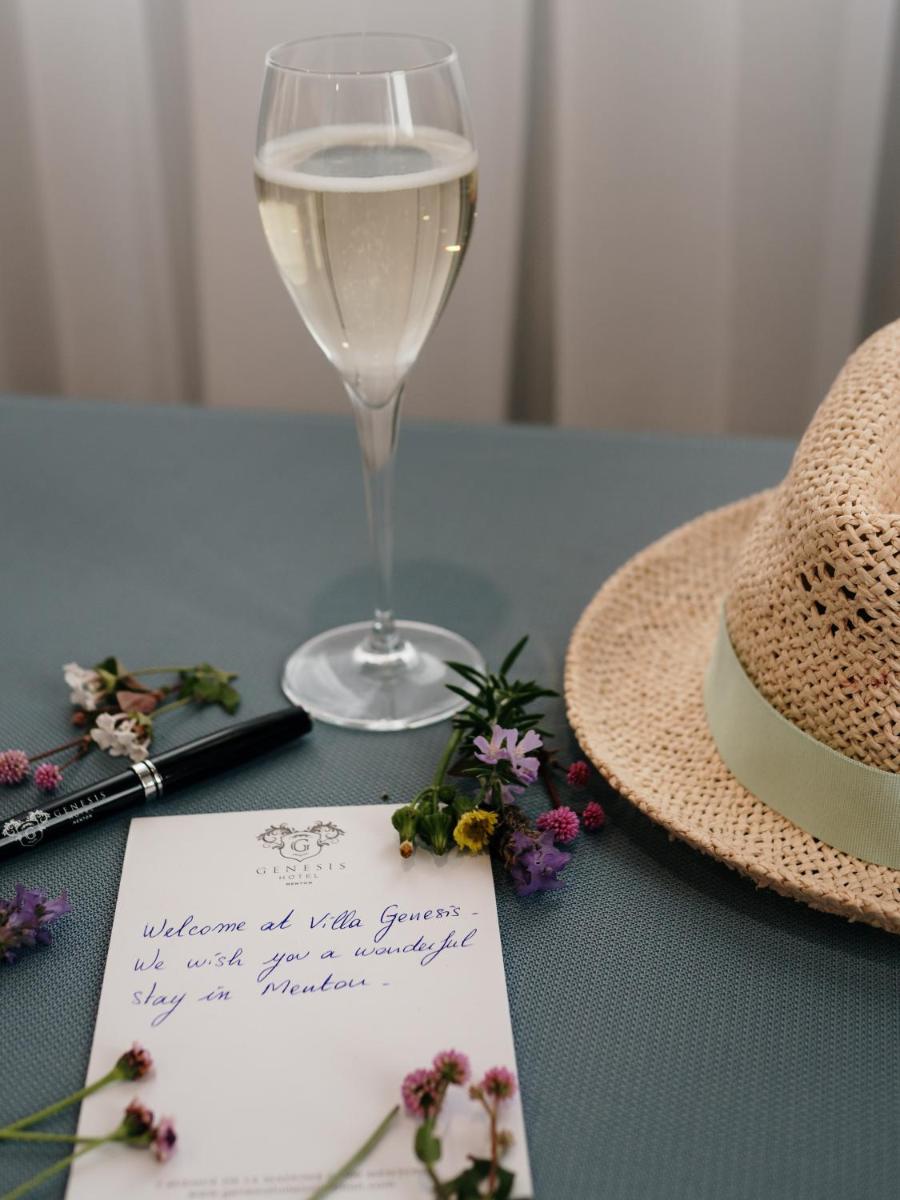 GENESIS
HOTEL
MENTON
G
GENESIS
HOTEL
MENTON
Welcome at Villa Genesis -
We wish you a wonderful
stay in Menton -